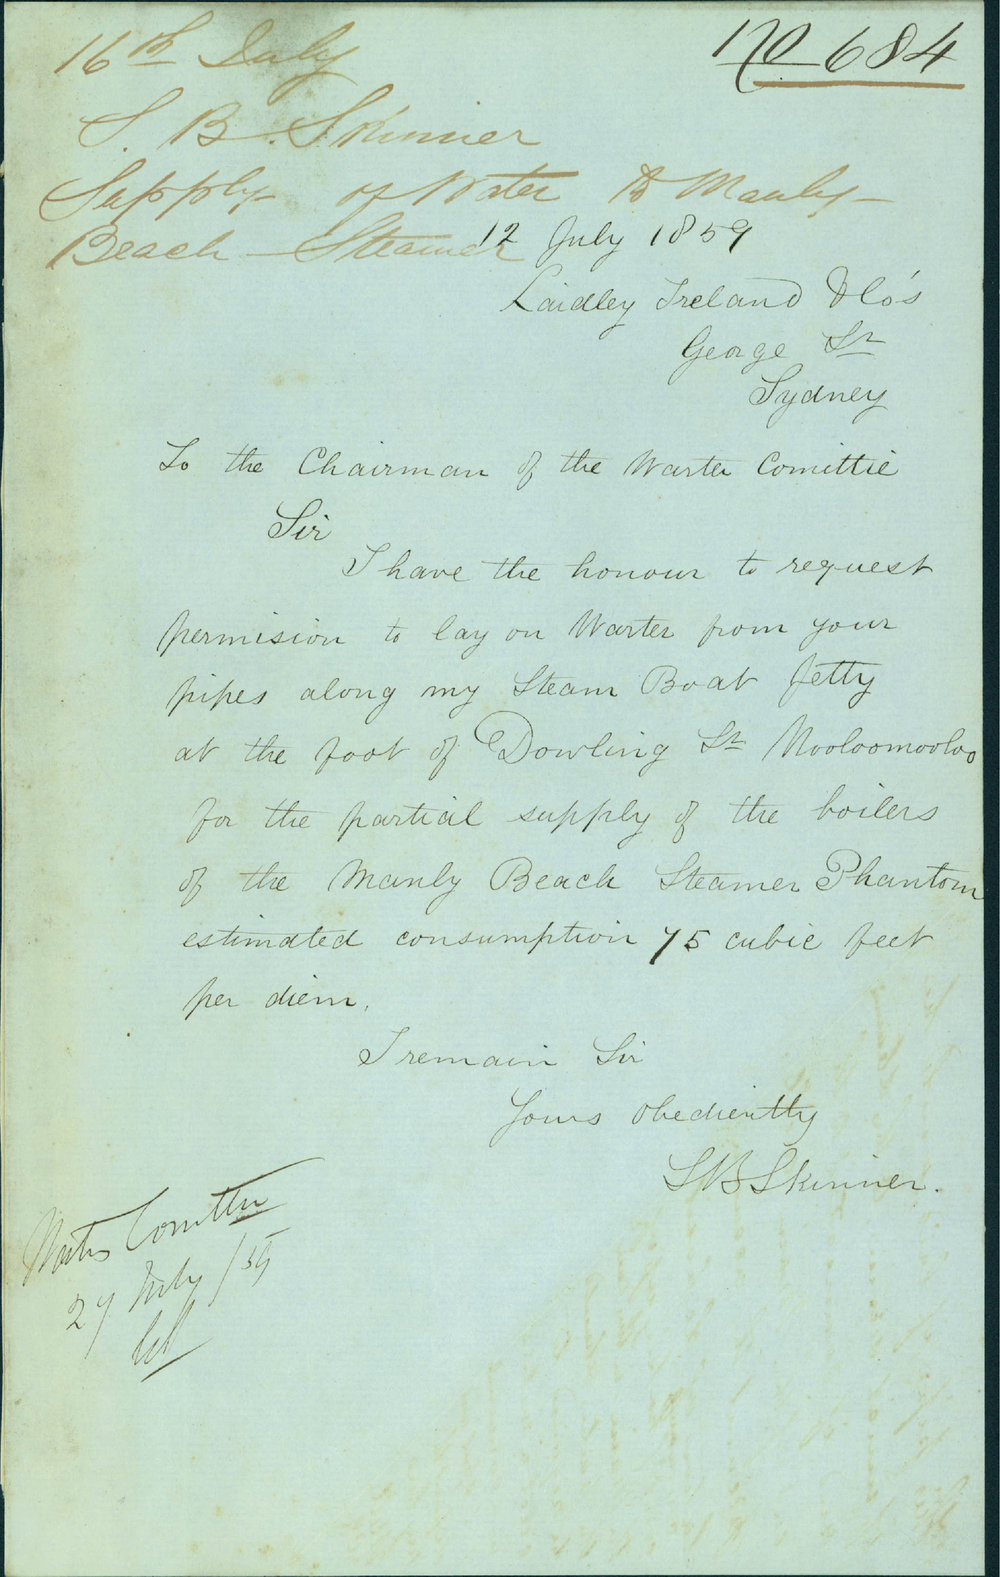 No 684
16th July
S. B. Skinner
Supply of Water to Manly
Beach Steamer
12 July 1859
Laidley Ireland & Co's
George St
Sydney
To the Chairman of the Warter Comittie
Sir
I have the honour to request
permision to lay on Warter from your
pipes along my Steam Boat Jetty
at the foot of Dowling St Wooloomooloo
for the partial supply of the boilers
of the Manly Beach Steamer Phantom
estimated consumption 75 cubic feet
per diem.
I remain Sir
Yours obediently
S B Skinner.
Water Comttee
27 July /59